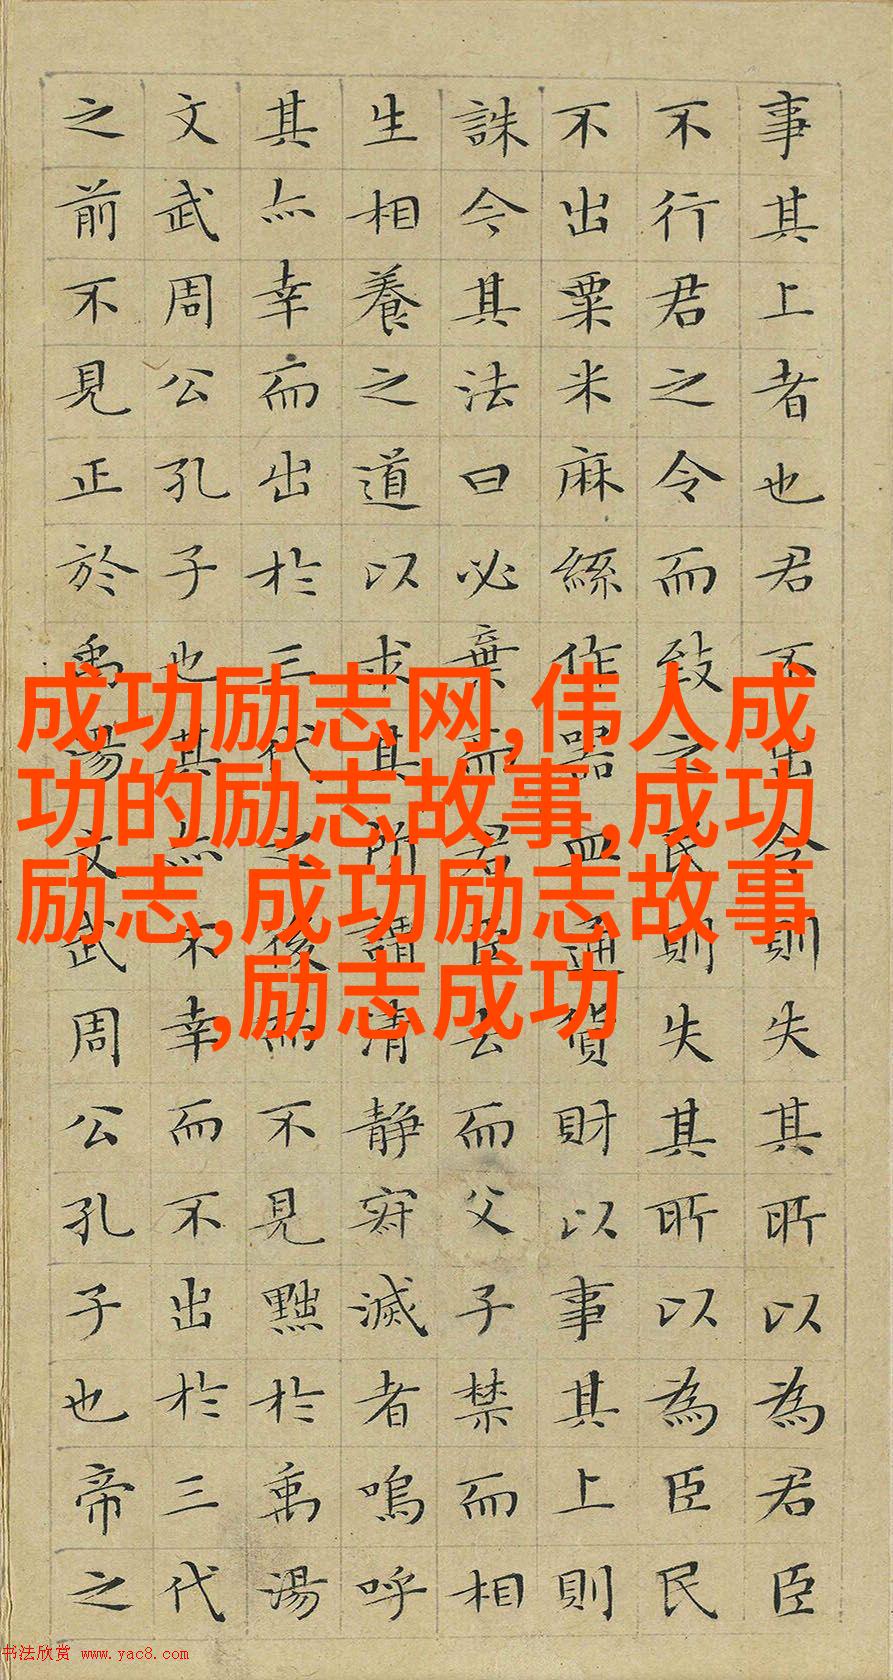 事其上者也君不出令則失其所以為君臣
不行君之令而致之民則失其所以為臣民
不出粟米麻絲作器皿通貨財以事其上則
誅今其法曰必棄而君臣去而父子禁而相
生相養之道以求其所謂清静寂滅者嗚呼
其亦幸而出於三代之後而不見黜於禹湯
文武周公孔子也其亦不幸而不出於三代
之前不見正於禹湯文武周公孔子也帝之
成功励志网,伟人成
功的励志故事,成功
励志,成功励志故事
,励志成功
书法欣赏 www.yac8.com